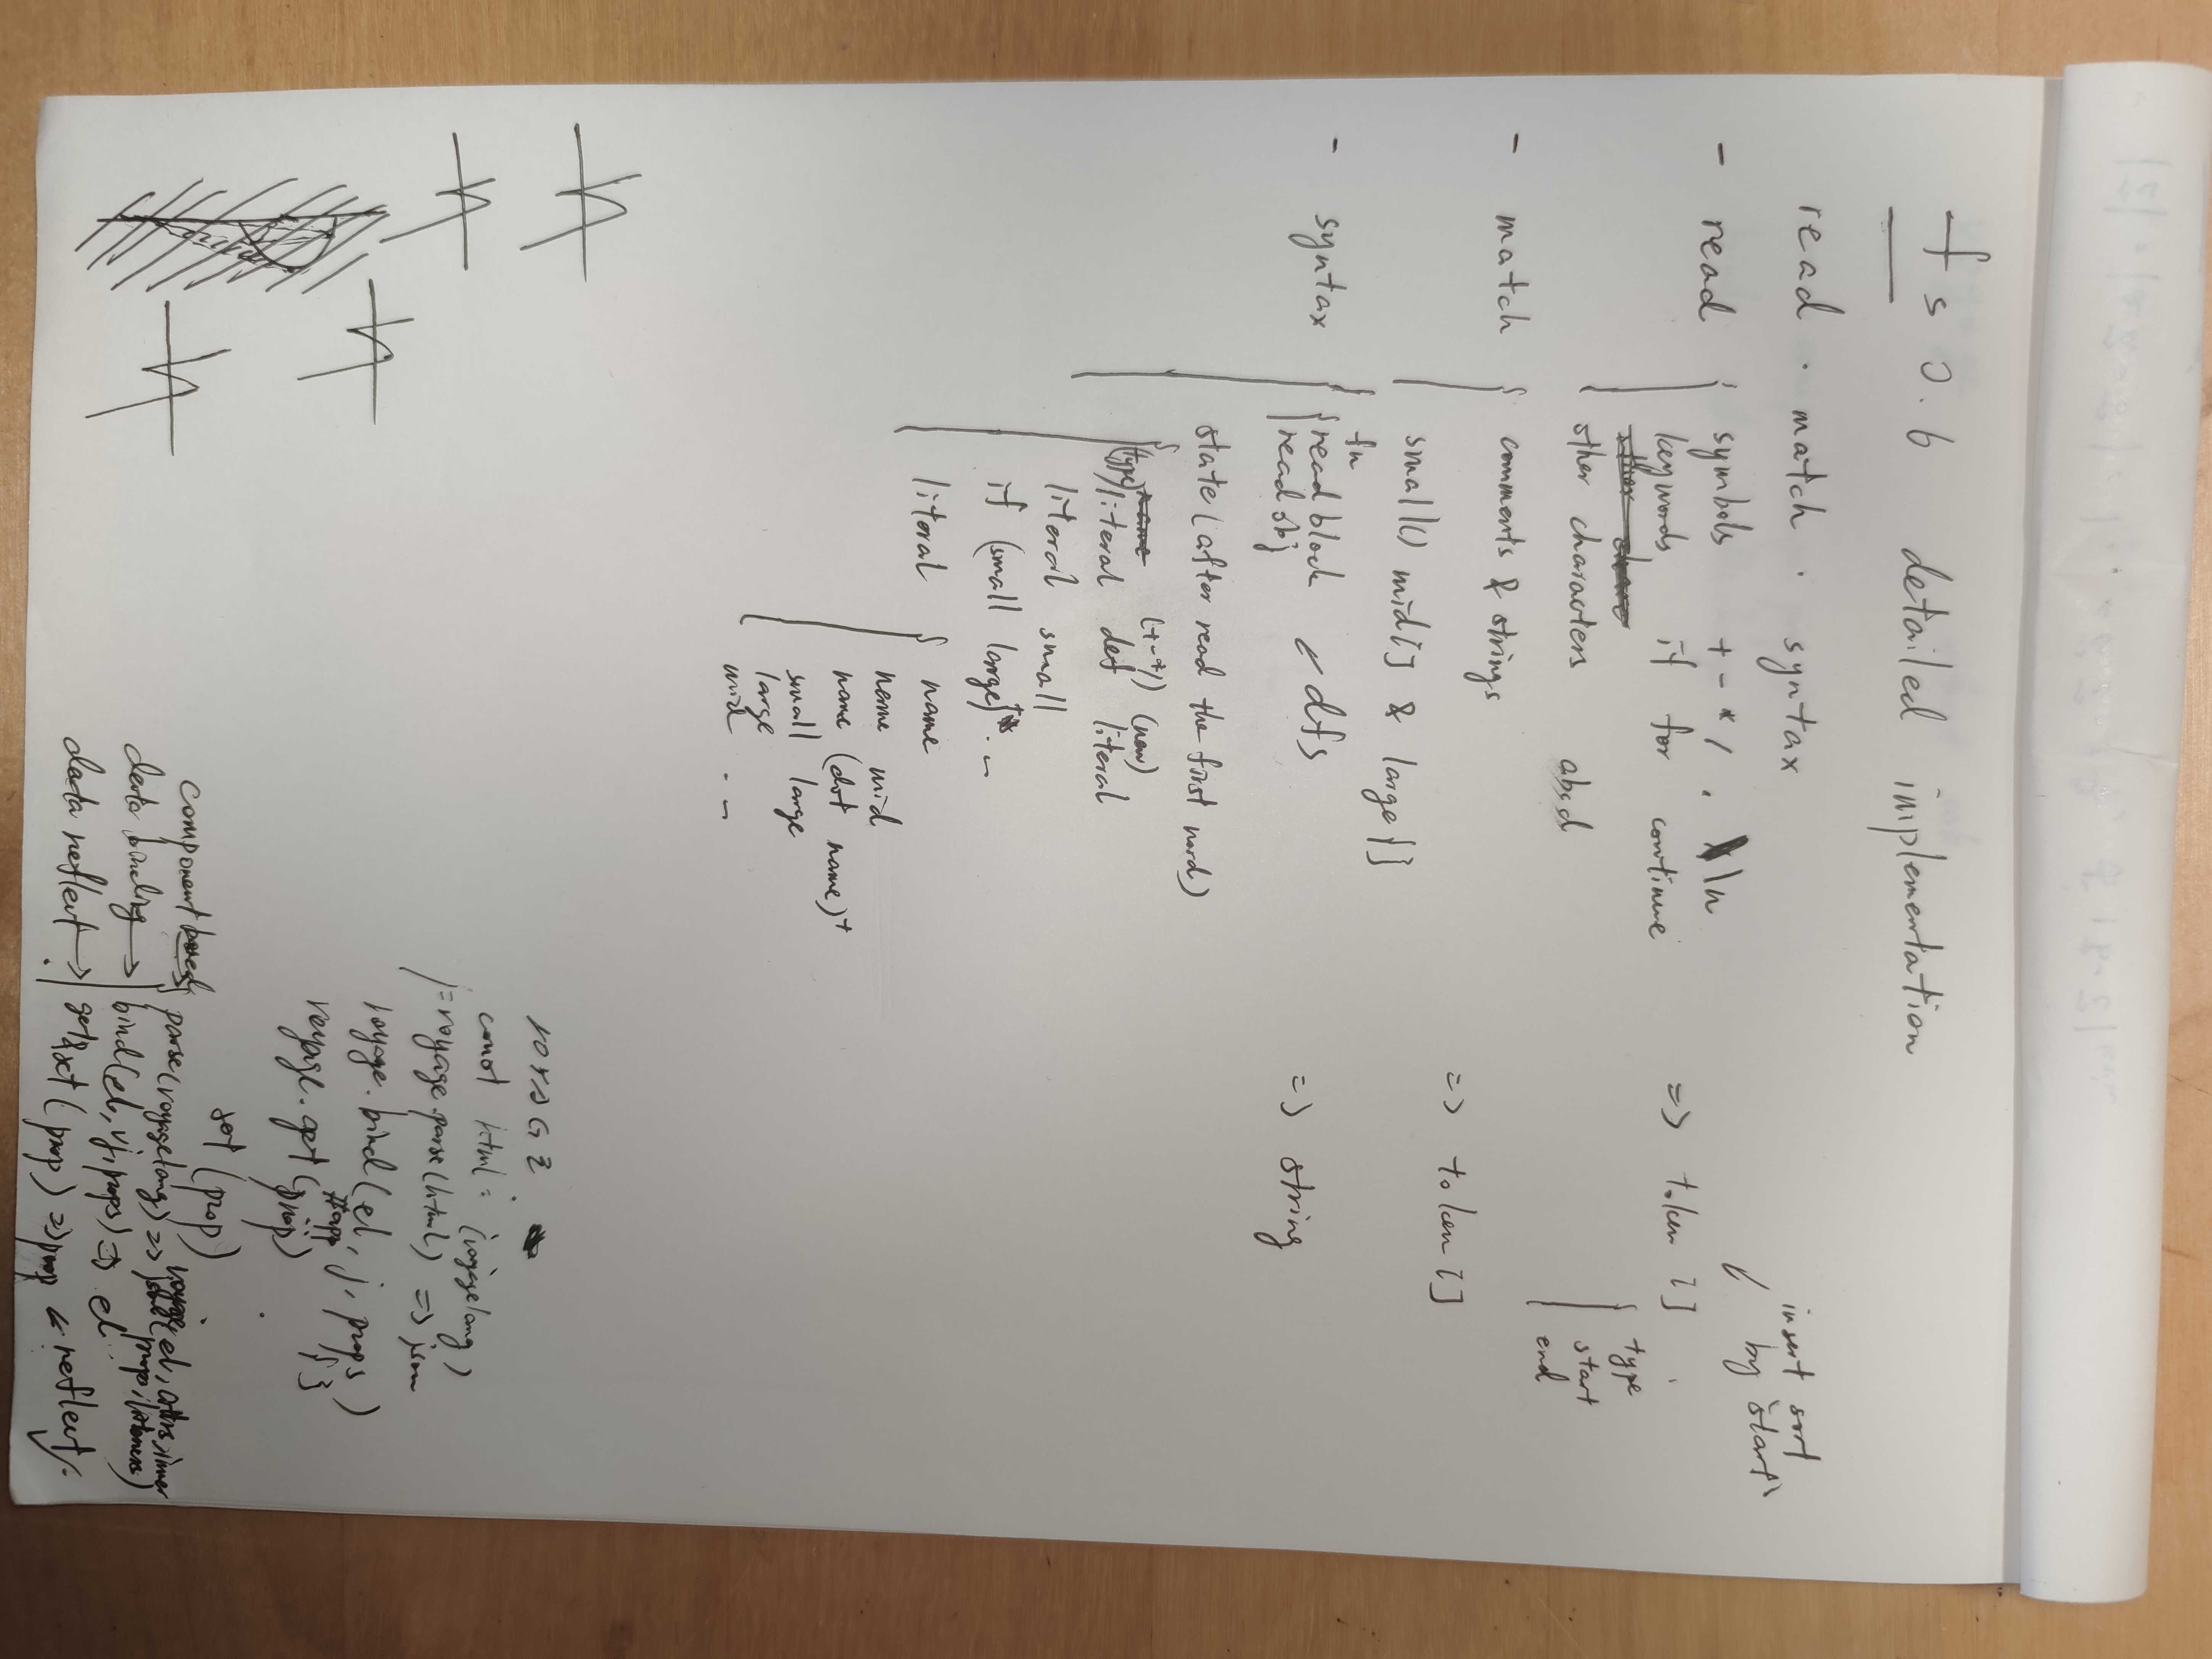 fs 0.6 detailed implementation
read · match · syntax
insert sort
by `start`
- read { symbols + - * / . \n
keywords if for continue
other characters abcd
=> token []
{ type
start
end
- match { comments & strings
small() mid[] & large {}
=> token []
- syntax { fn
{ readblock ↙ dfs
readobj
=> string
state (after read the first word)
{ (type) name (+-*/) (new)
literal def literal
literal small
if (small large)+ ...
literal { name
name mid
name (dot name)+
small large
large
mid ...
VOYAGE
const html = `voyagelang`
j = voyage.parse(html) => json
voyage.bind(el, j, props)
#app {}
voyage.get(prop)
set (prop)
component based
parse(voyagelang) => voyage json (el, attrs, inner
props, listeners)
data binding → bind(el, vj, props) => el
data reflect → get&set (prop) => prop ← reflect